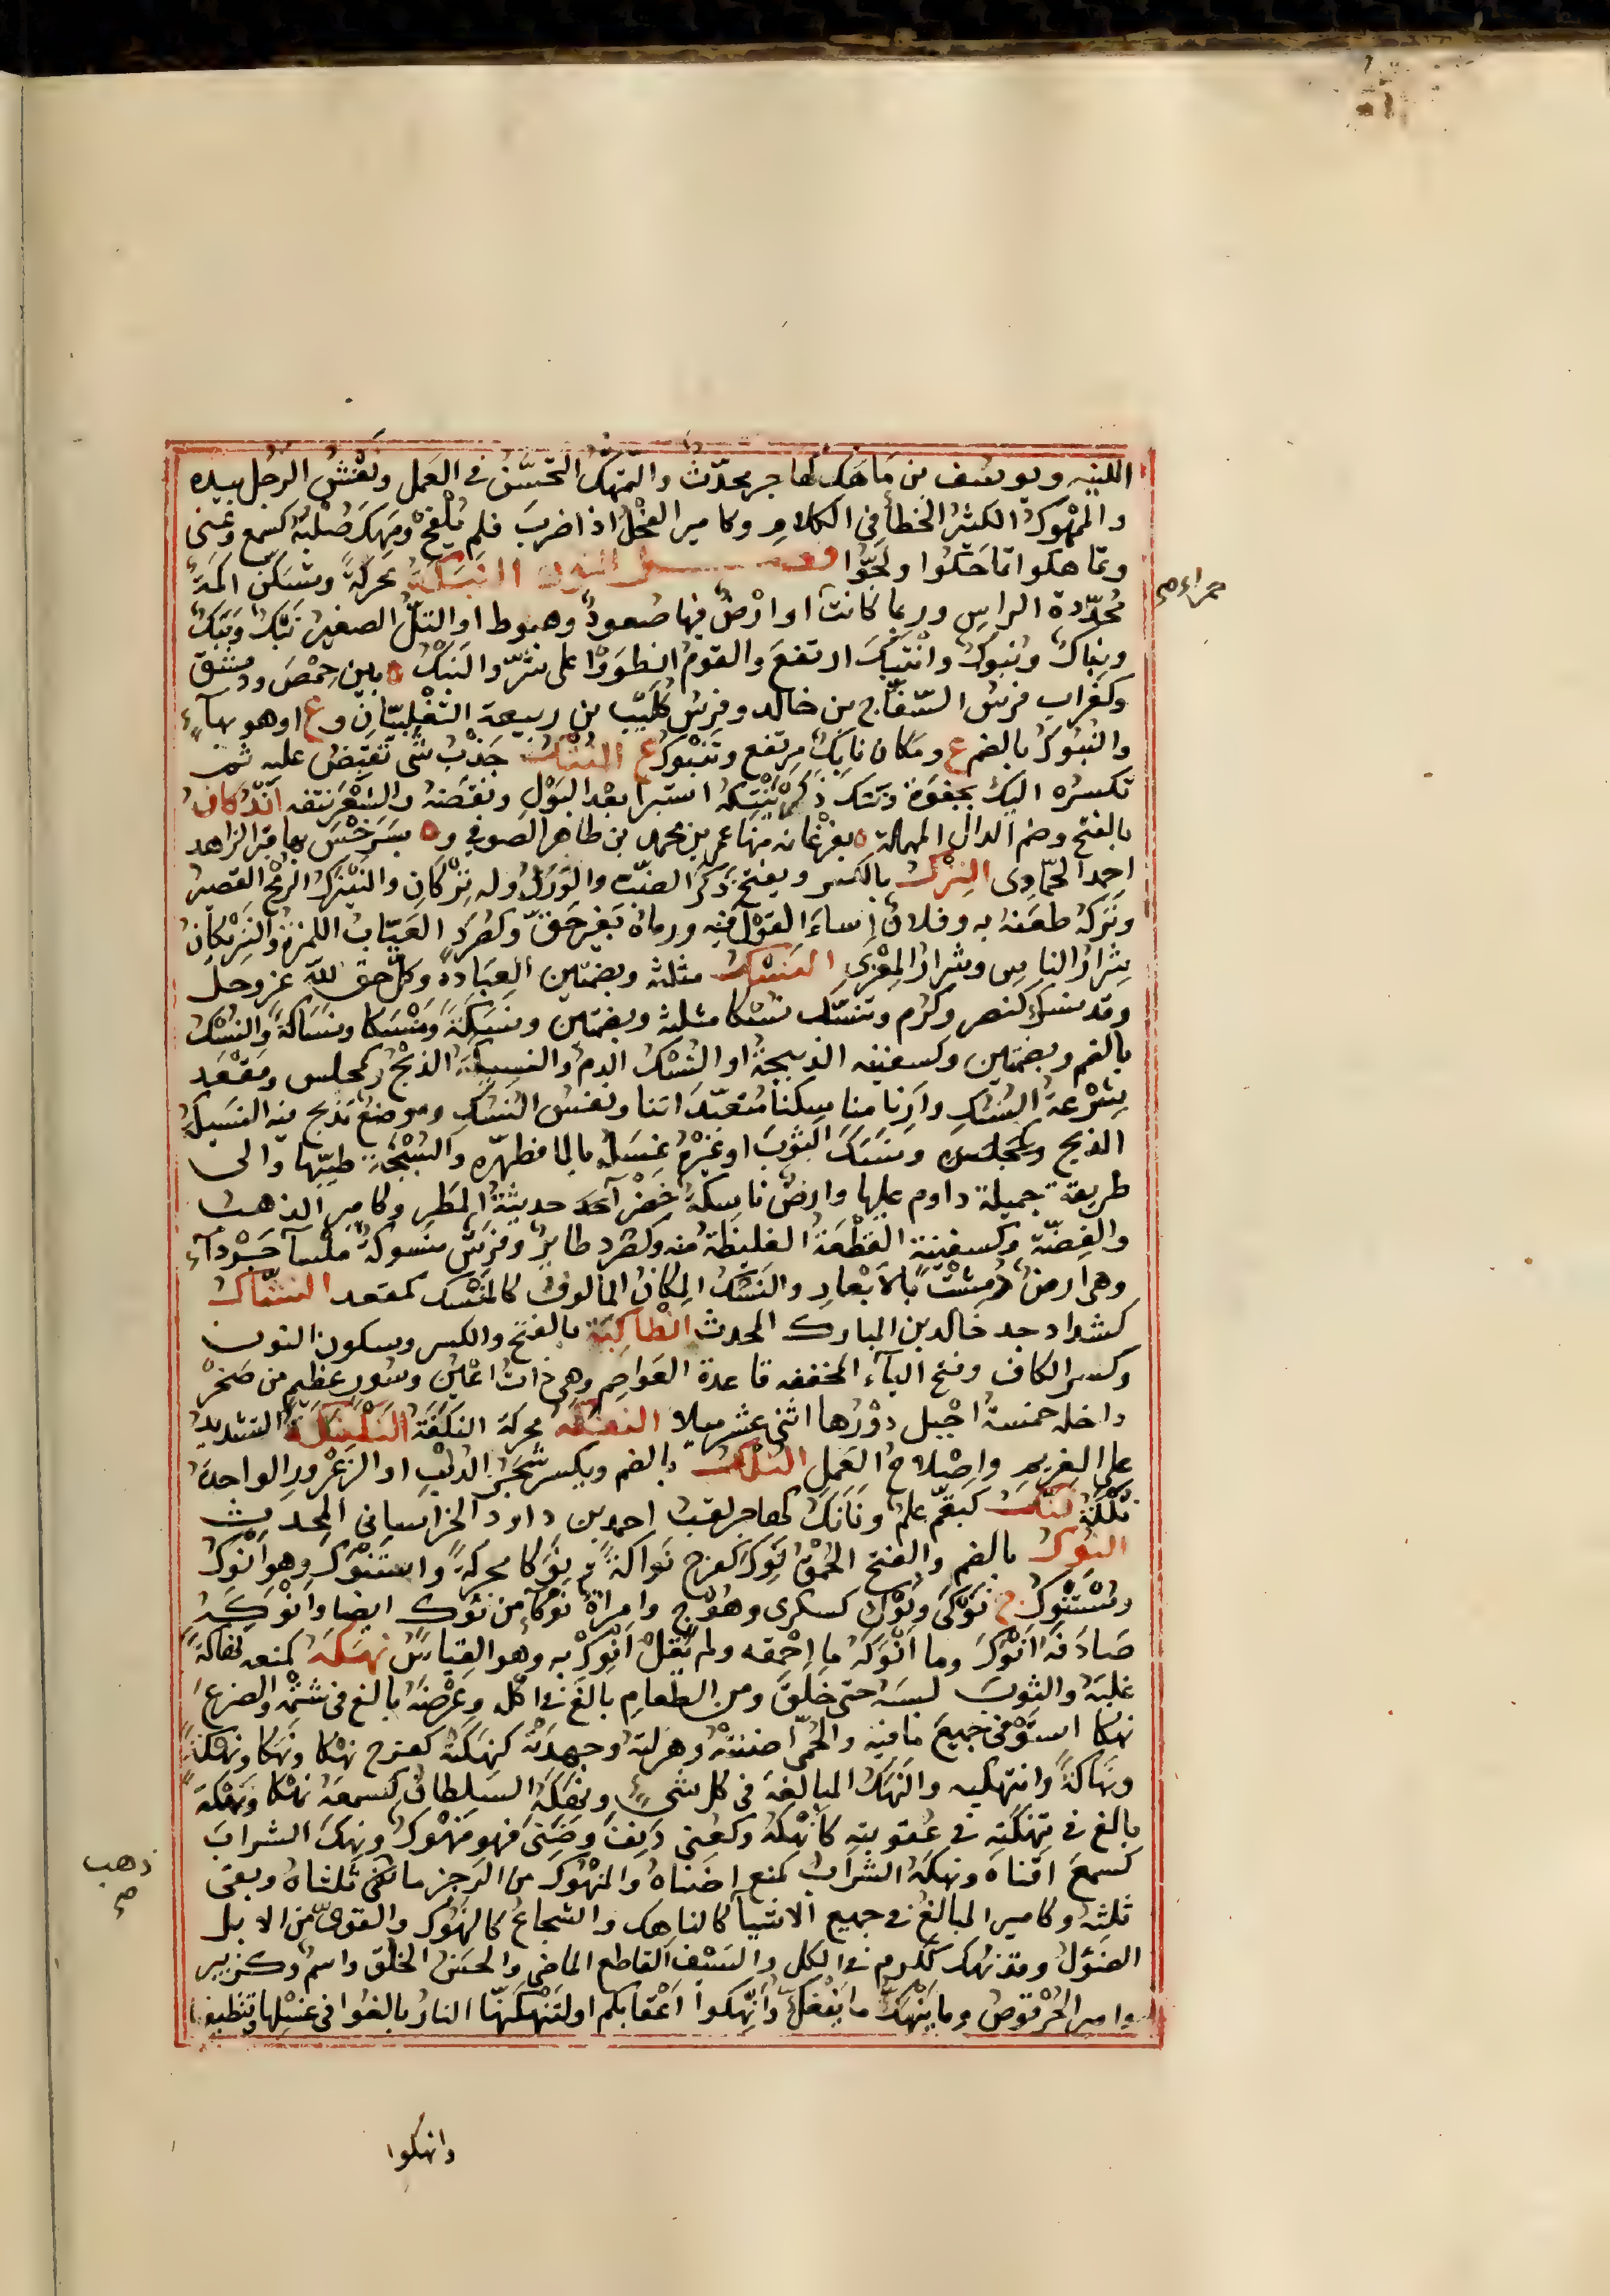 اللبنيه ويوسف بن ماهك كهاجر محدّث والتمهك التحسّن في العمل ونفش الرجل بيده
والممهوك الكثير الخطأ في الكلام وكامير الفحل اذا ضرب فلم يلقح ومهك صلبه كسمع وعني
وتماهكوا تماحكوا ولجّوا فصل النون النبكة محركة وتسكن اكمة
محدّدة الراس وربما كانت او ارض فيها صعود وهبوط او التل الصغير نبك ونبك
ونباك ونبوك وانتبك ارتفع والقوم انطووا على شرّ والنبك ه بين حمص ودمشق
وكغراب فرس السفّاح بن خالد وفرس كليب بن ربيعة التغلبيّان وع اوهو بهاء
والنبوك بالضم ع ومكان نابك مرتفع وتنبوك ع النتك جذب شي تقبض عليه ثم
تكسره اليك بجفوة ونتك ذكره ينتكه استبرا بعد البول ونفضه والشعر نتفه اندكان
بالفتح وضم الدال المهملة ه بفرغانه منها عمر بن محمد بن طاهر الصوفي وه بسرخس بها قبر الزاهد
احمد الحمّادي النزك بالكسر ويفتح ذكر الضبّ والورل وله نزكان والنيزك الرمح القصير
ونزكه طعنه به وفلان اساء القول فيه ورماه بغير حق وكصرد العيّاب اللمزة والنزيكان
شرار الناس وشرار المعزى النسك مثلثة وبضمتين العبادة وكل حق لله عز وجل
وقد نسك كنصر وكرم وتنسّك نسكا مثلثة وبضمتين ونسكة ومنسكا ونساكة والنسك
بالضم وبضمتين وكسفينه الذبيحة او النسك الدم والنسيكة الذبح وكمجلس ومقعد
شرعة النسك وارنا مناسكنا متعبّداتنا ونفس النسك وموضع تذبح فيه النسيكة
الذبح وكمجلس ونسك الثوب او غيره غسله بالما فطهّره والسبخة طيّبها والى
طريقة جميلة داوم عليها وارض ناسكة خضراء حديثة المطر وكامير الذهب
والفضّة وكسفينة القطعة الغليظة منه وكصرد طاير وفرس منسوكة ملسا جرداء
وهي ارض دمثت بالابعار والنسك المكان المالوف كالمنسك كمقعد النشّاك
كشداد جد خالد بن المبارك المحدث انطاكية بالفتح والكسر وسكون النون
وكسر الكاف وفتح الياء المخففه قاعدة العواصم وهي ذات اعين وسور عظيم من صخر
داخله خمسة اجبل دورها اثني عشر ميلا النفكة محركة النكفة النكنكة التشديد
على الغريم واصلاح العمل النلك بالضم ويكسر شجر الدلب او الزعرور الواحدة
نلكة ننك كبقّم علم ونانك كهاجر لقب احمد بن داود الخراساني المحدث
النوك بالضم والفتح الحمق نوك كفرح نواكة ونوكا محركة واستنوك وهو انوك
ومستنوك ج نوكى ونوك كسكرى وهوج وامراة نوكاء من نوك ايضا وانوكه
صادفه انوك وما انوكه ما احمقه ولم يقل انوك به وهو القياس نهكه كمنعه نهاكة
غلبه والثوب لبسه حتى خلق ومن الطعام بالغ في اكله وعرضه بالغ في شتمه والضرع
نهكا استوفى جميع ما فيه والحمّى اضنته وهزلته وجهدته كنهكته كفرح نهكا ونهكا ونهكة
ونهاكة وانتهكيه والنهك المبالغة في كل شي ونهكه السلطان كسمعه نهكا ونهكة
بالغ في عقوبته كانهكه وكعني دنف وضني فهو منهوك ونهك الشراب
كسمع افناه ونهكه الشراب كمنع اضناه والمنهوك من الرجز ما ذهب ثلثاه وبقي
ثلثه وكامير المبالغ في جميع الاشيا كالناهك والشجاع كالنهوك والقوي من الابل
الصؤل وقد نهك ككرم في الكل والسيف القاطع الماضي والحسن الخلق واسم وكزبير
وامير الحرقوص وما ينهك ما ينفك وانهكوا اعقابكم او لتنهكنّها النار بالغوا في غسلها وتنظيفها
ذهب
صح
وانهكوا